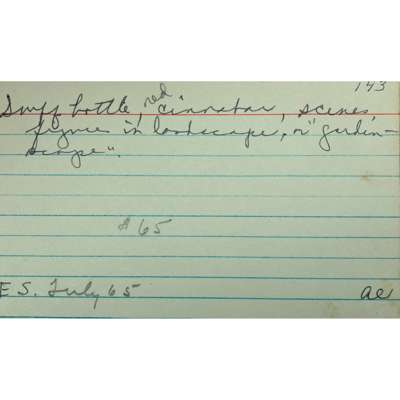 143
Snuff bottle, red cinnabar, scenes,
figures in landscape, or "garden-
scape".
$65
E S. July 65
ae